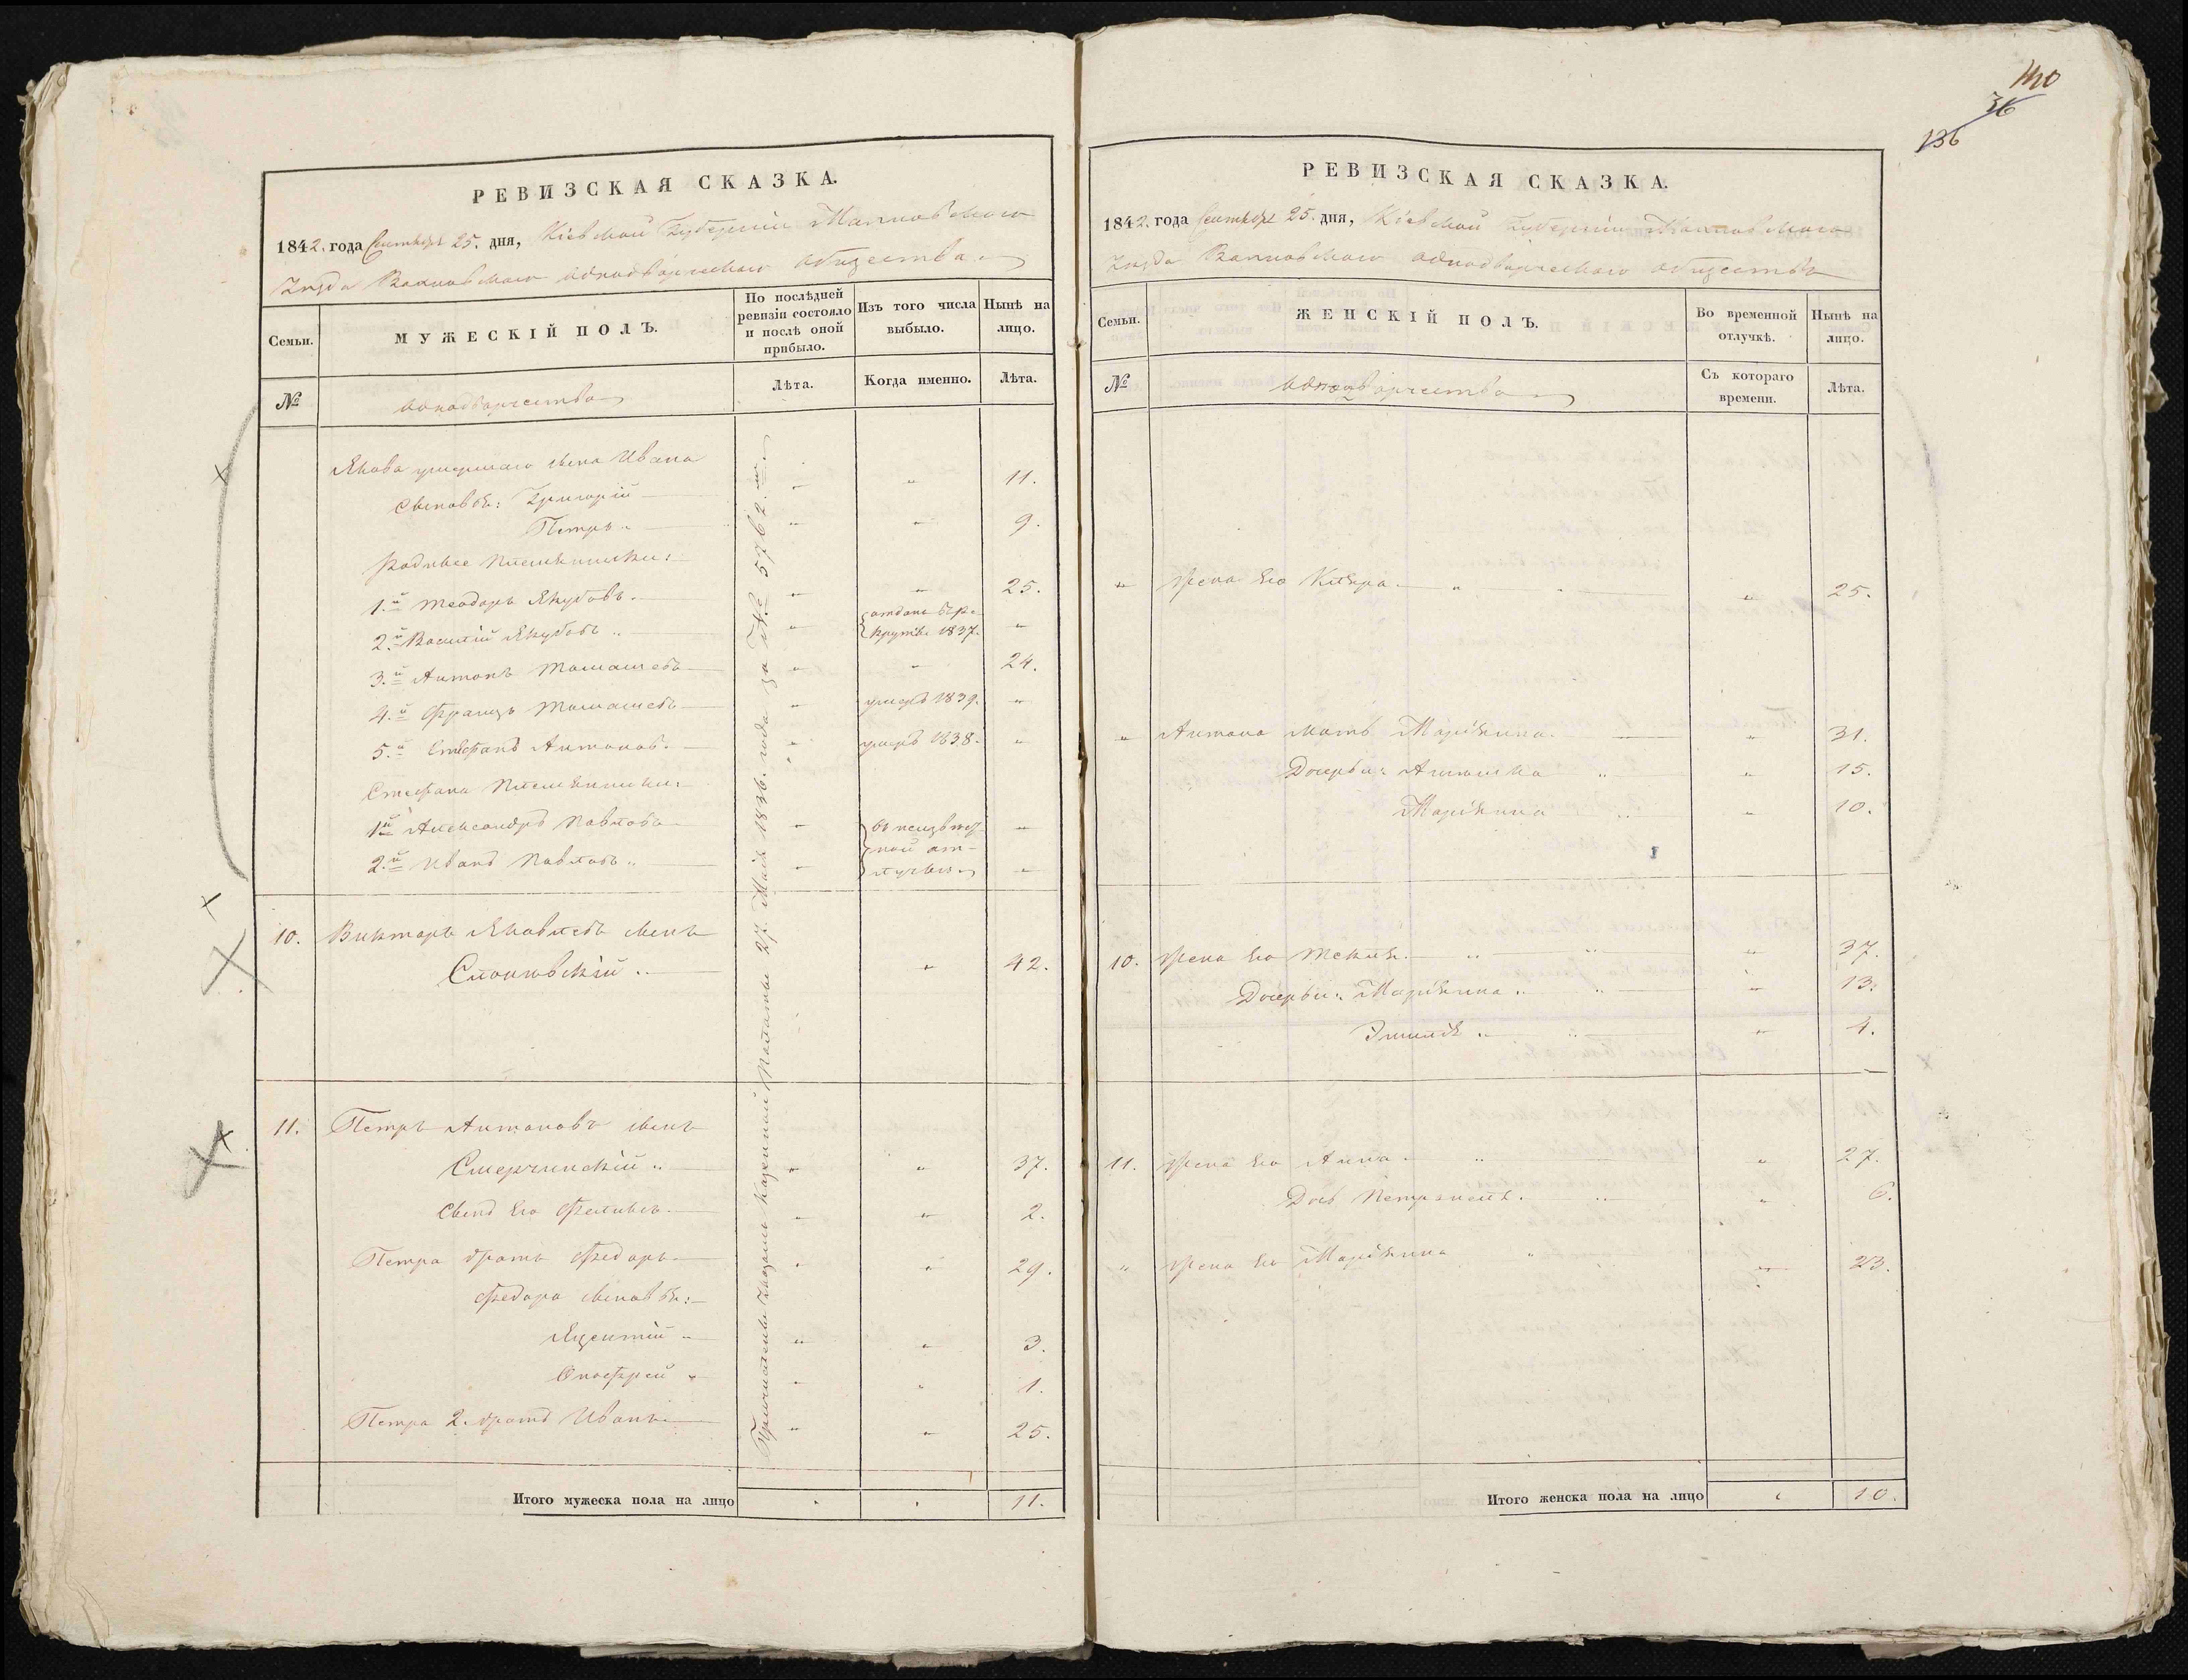 РЕВИЗСКАЯ СКАЗКА.
1842. года Сентября 25. дня, Кіевской Губерніи Липовецкаго
Уѣзда Вахновскаго однодворческаго общества.
Семьи.
МУЖЕСКІЙ ПОЛЪ.
По послѣдней
ревизіи состояло
и послѣ оной
прибыло.
Изъ того числа
выбыло.
Нынѣ на
лицо.
№
однодворчества
Лѣта.
Когда именно.
Лѣта.
Якова умершаго сына Ивана
Сыновья: Григорій " 11.
Петръ " 9.
племянники:
1.й Теодоръ Якубовъ " 25.
2.й Василій Якубовъ отданъ въ ре-
круты 1837.
3.й Антонъ Томашевъ " 24.
4.й Францъ Томашевъ умеръ 1839.
5.й Стефанъ Антоновъ умеръ 1838.
Стефана племянники:
1й Александръ Павловъ въ неизвест-
ной от-
2.й Иванъ Павловъ лучкѣ
10. Викторъ Яковлевъ сынъ
" 42.
11. Петръ Антоновъ сынъ
Смерчинскій " 37.
Сынъ его Феликсъ " 2.
Петра братъ Федоръ " 29.
Федора сыновья:
Яцентій " 3.
Онофрей " 1.
Петра 2. братъ Иванъ " 25.
Причислены Указомъ Казенной Палаты 27. Мая 1836. года за № 5762.м
Итого мужеска пола на лицо 11.
140
36
136
РЕВИЗСКАЯ СКАЗКА.
1842. года Сентября 25. дня, Кіевской Губерніи Липовецкаго
Уѣзда Вахновскаго однодворческаго общества
Семьи.
ЖЕНСКІЙ ПОЛЪ.
Во временной
отлучкѣ.
Нынѣ на
лицо.
№
однодворчества
Съ котораго
времени.
Лѣта.
" Жена его Клара " 25.
" Антона мать Маріянна " 31.
Дочери: " 15.
Маріянна " 10.
10. Жена его Текля " 37.
Дочери: Маріянна " 13.
Эмилія " 4.
11. Жена его Анна " 27.
Дочь Петронеля " 6.
" Жена его Маріянна " 23.
Итого женска пола на лицо 10.